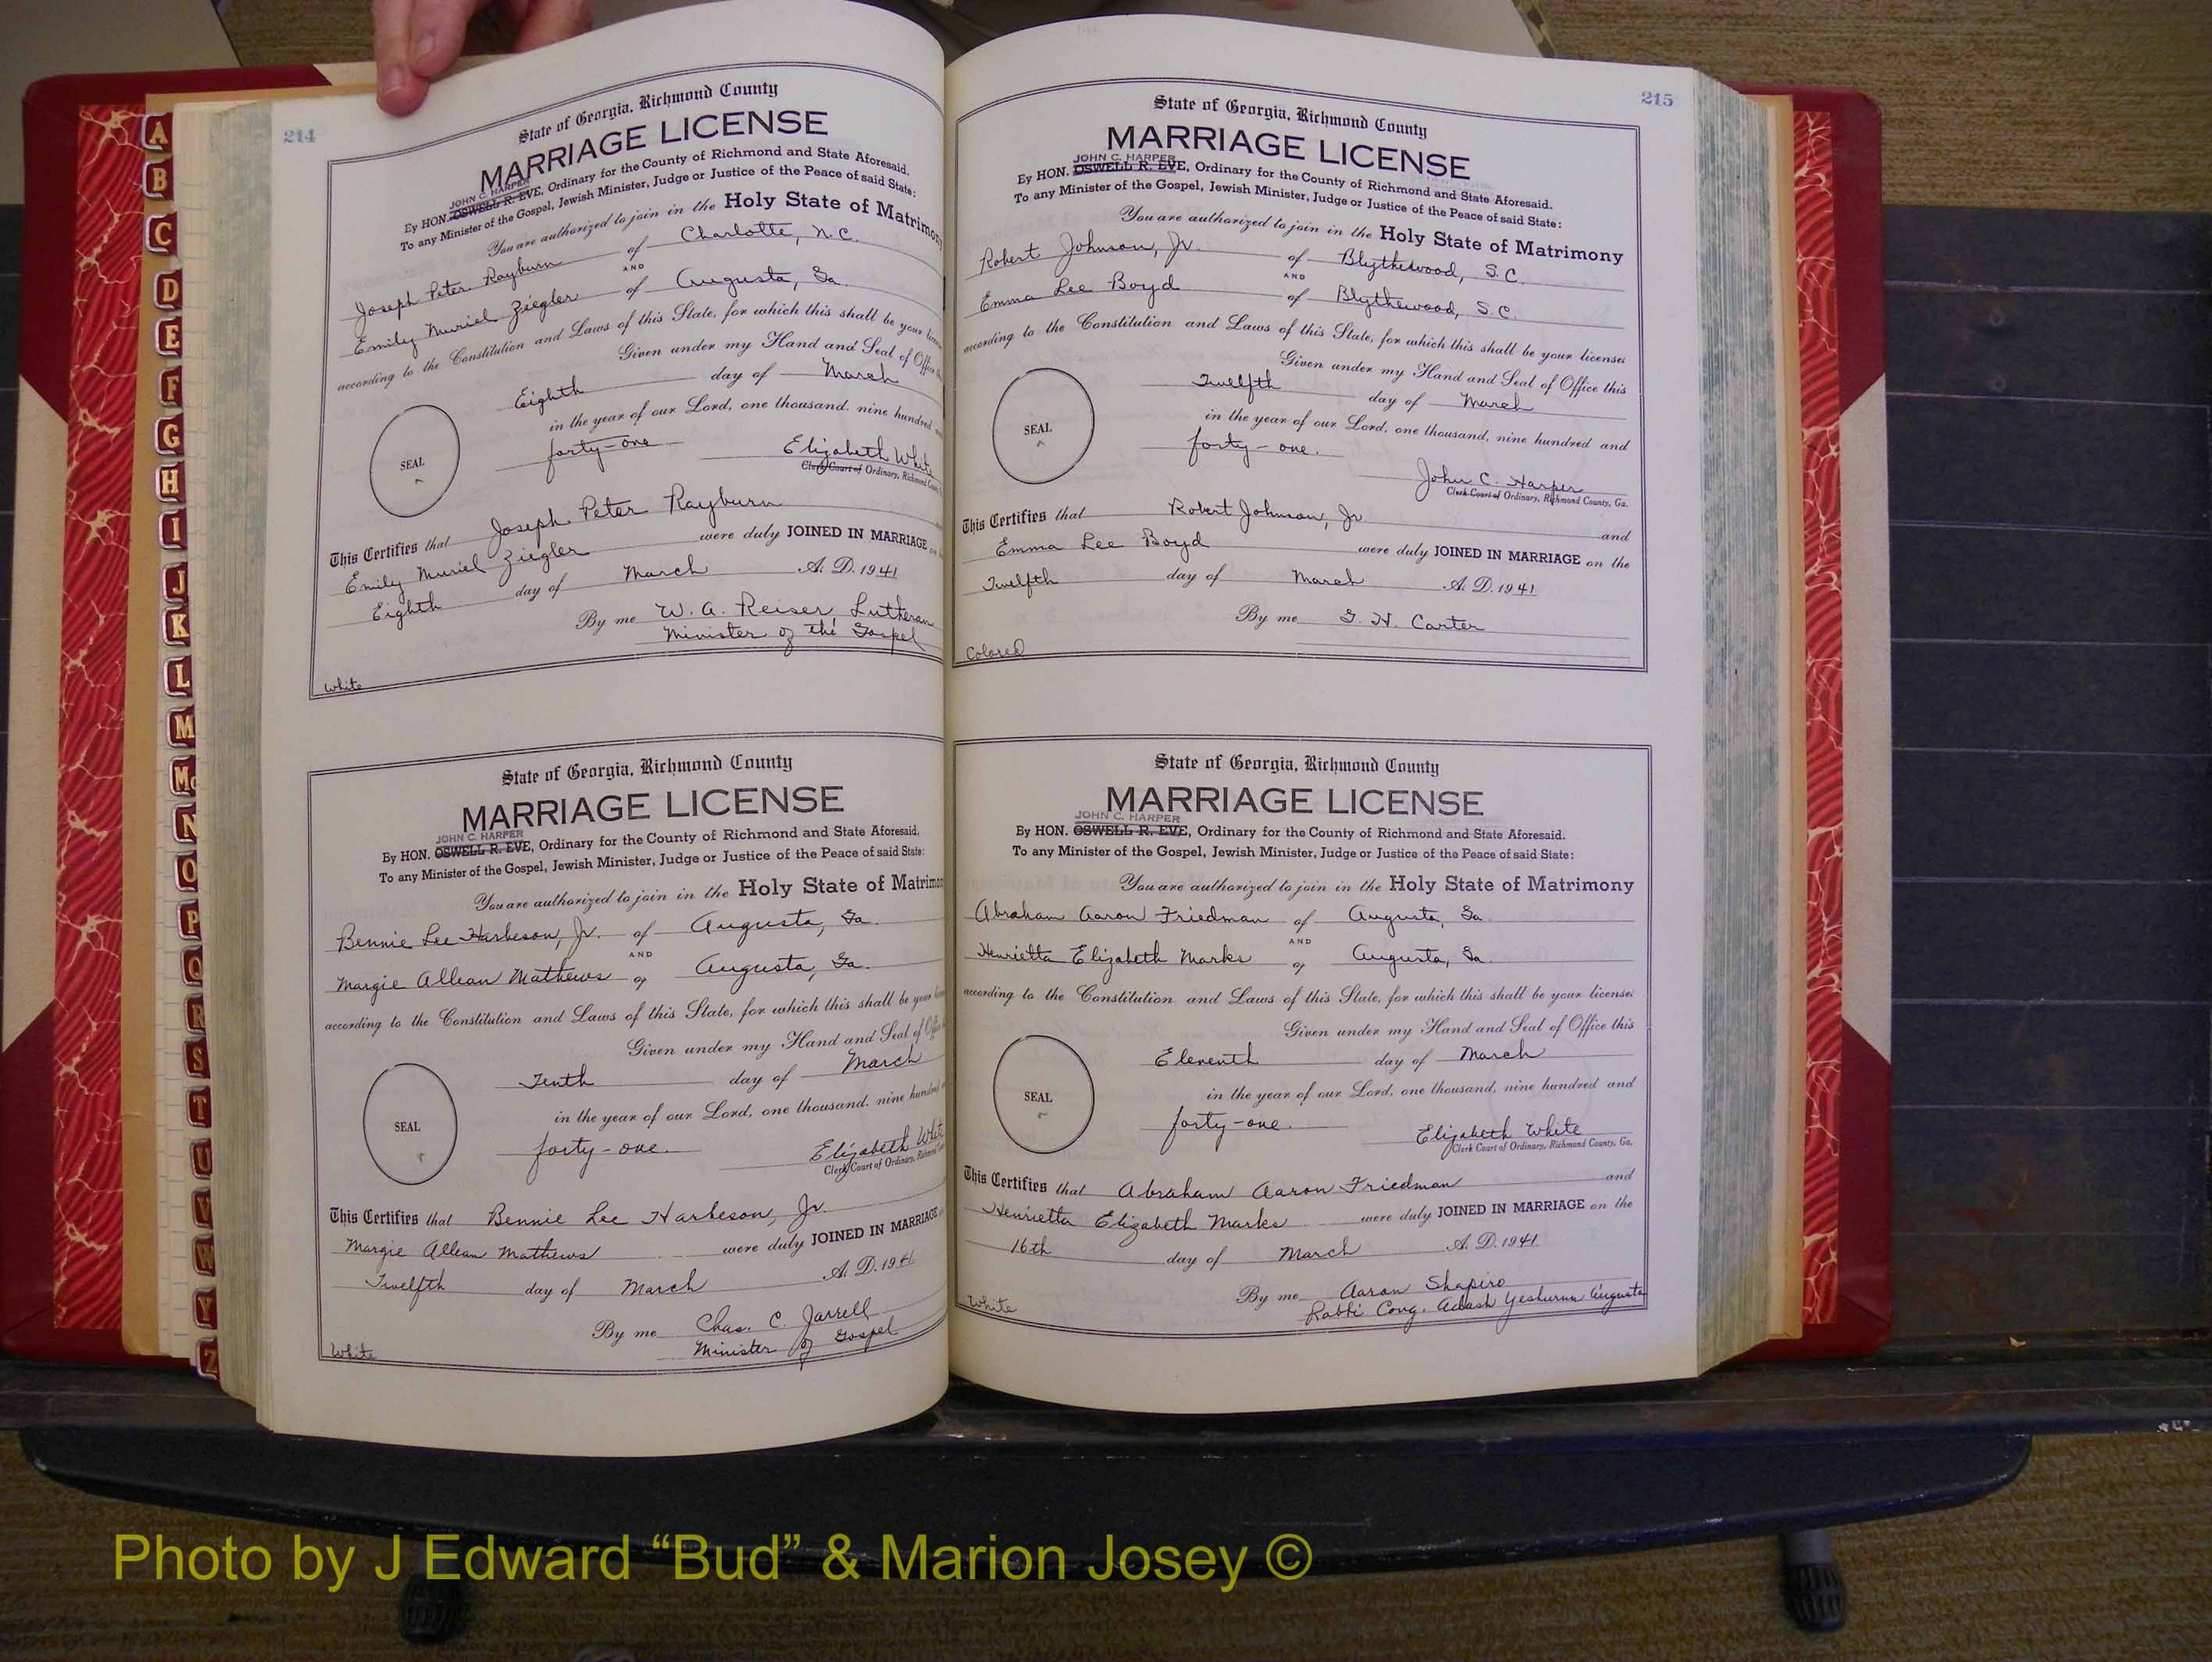 214
State of Georgia, Richmond County
MARRIAGE LICENSE
JOHN C. HARPER
By HON. OSWELL R. EVE, Ordinary for the County of Richmond and State Aforesaid.
To any Minister of the Gospel, Jewish Minister, Judge or Justice of the Peace of said State:
You are authorized to join in the Holy State of Matrimony
Joseph Peter Rayburn of Charlotte, N.C.
AND
Emily Muriel Ziegler of Augusta, Ga.
according to the Constitution and Laws of this State, for which this shall be your
Given under my Hand and Seal of
Eighth day of March
in the year of our Lord, one thousand, nine hundred
forty-one
Elizabeth White
Clerk Court of Ordinary, Richmond
SEAL
This Certifies that Joseph Peter Rayburn
Emily Muriel Ziegler were duly JOINED IN MARRIAGE
Eighth day of March A. D. 1941
By me W. A. Reiser Lutheran
Minister of the Gospel
White
State of Georgia, Richmond County
MARRIAGE LICENSE
JOHN C. HARPER
By HON. OSWELL R. EVE, Ordinary for the County of Richmond and State Aforesaid.
To any Minister of the Gospel, Jewish Minister, Judge or Justice of the Peace of said State:
You are authorized to join in the Holy State of Matrimo
Bennie Lee Harbeson, Jr. of Augusta, Ga.
AND
Margie Allean Mathews of Augusta, Ga.
according to the Constitution and Laws of this State, for which this shall be your
Given under my Hand and Seal of
Tenth day of March
in the year of our Lord, one thousand, nine hundred
forty-one.
Elizabeth White
Clerk Court of Ordinary,
SEAL
This Certifies that Bennie Lee Harbeson, Jr.
Margie Allean Mathews were duly JOINED IN MARRIAGE
Twelfth day of March A. D. 1941
By me Chas. C. Jarrell
Minister of Gospel
White
215
State of Georgia, Richmond County
MARRIAGE LICENSE
JOHN C. HARPER
By HON. OSWELL R. EVE, Ordinary for the County of Richmond and State Aforesaid.
To any Minister of the Gospel, Jewish Minister, Judge or Justice of the Peace of said State:
You are authorized to join in the Holy State of Matrimony
Robert Johnson, Jr. of Blythewood, S.C.
AND
Emma Lee Boyd of Blythewood, S.C.
according to the Constitution and Laws of this State, for which this shall be your license:
Given under my Hand and Seal of Office this
Twelfth day of March
in the year of our Lord, one thousand, nine hundred and
forty-one.
John C. Harper
Clerk Court of Ordinary, Richmond County, Ga.
SEAL
This Certifies that Robert Johnson, Jr. and
Emma Lee Boyd were duly JOINED IN MARRIAGE on the
Twelfth day of March A. D. 1941
By me G. H. Carter
Colored
State of Georgia, Richmond County
MARRIAGE LICENSE
JOHN C. HARPER
By HON. OSWELL R. EVE, Ordinary for the County of Richmond and State Aforesaid.
To any Minister of the Gospel, Jewish Minister, Judge or Justice of the Peace of said State:
You are authorized to join in the Holy State of Matrimony
Abraham Aaron Friedman of Augusta, Ga.
AND
Henrietta Elizabeth Marks of Augusta, Ga.
according to the Constitution and Laws of this State, for which this shall be your license:
Given under my Hand and Seal of Office this
Eleventh day of March
in the year of our Lord, one thousand, nine hundred and
forty-one.
Elizabeth White
Clerk Court of Ordinary, Richmond County, Ga.
SEAL
This Certifies that Abraham Aaron Friedman and
Henrietta Elizabeth Marks were duly JOINED IN MARRIAGE on the
16th day of March A. D. 1941
By me Aaron Shapiro
Rabbi Cong. Adash Yeshurun Augusta
White
A
B
C
D
E
F
G
H
I
J
K
L
M
Mc
N
O
P
Q
R
S
T
U
V
W
Y
Z
Photo by J Edward “Bud” & Marion Josey ©